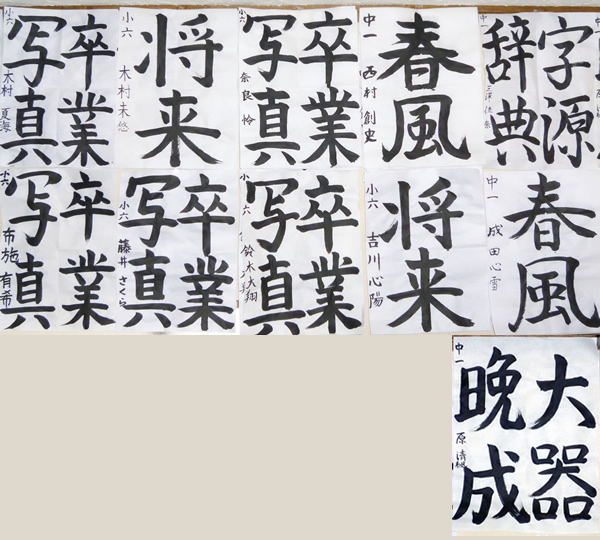 卒業
写真
小六 木村 夏海
将来
小六 木村未悠
卒業
写真
小六 奈良 怜
春風
中一 西村 創史
字源
辞典
中一
卒業
写真
小六 布施 有希
卒業
写真
小六 藤井さくら
卒業
写真
小六 鈴木大翔
将来
小六 吉川心陽
春風
中一 成田心雪
大器
晩成
中一 原